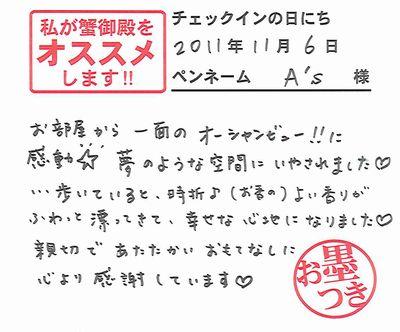 私が蟹御殿を
オススメ
します!!
チェックインの日にち
2011年11月6日
ペンネーム A's 様
お部屋から 一面の オーシャンビュー!!に
感動☆ 夢のような空間に いやされました♡
…歩いていると、時折♪(お香の)よい香りが
ふわっと漂ってきて、幸せな 心地に なりました♡
親切で あたたかい おもてなしに
心より 感謝しています♡
お墨つき